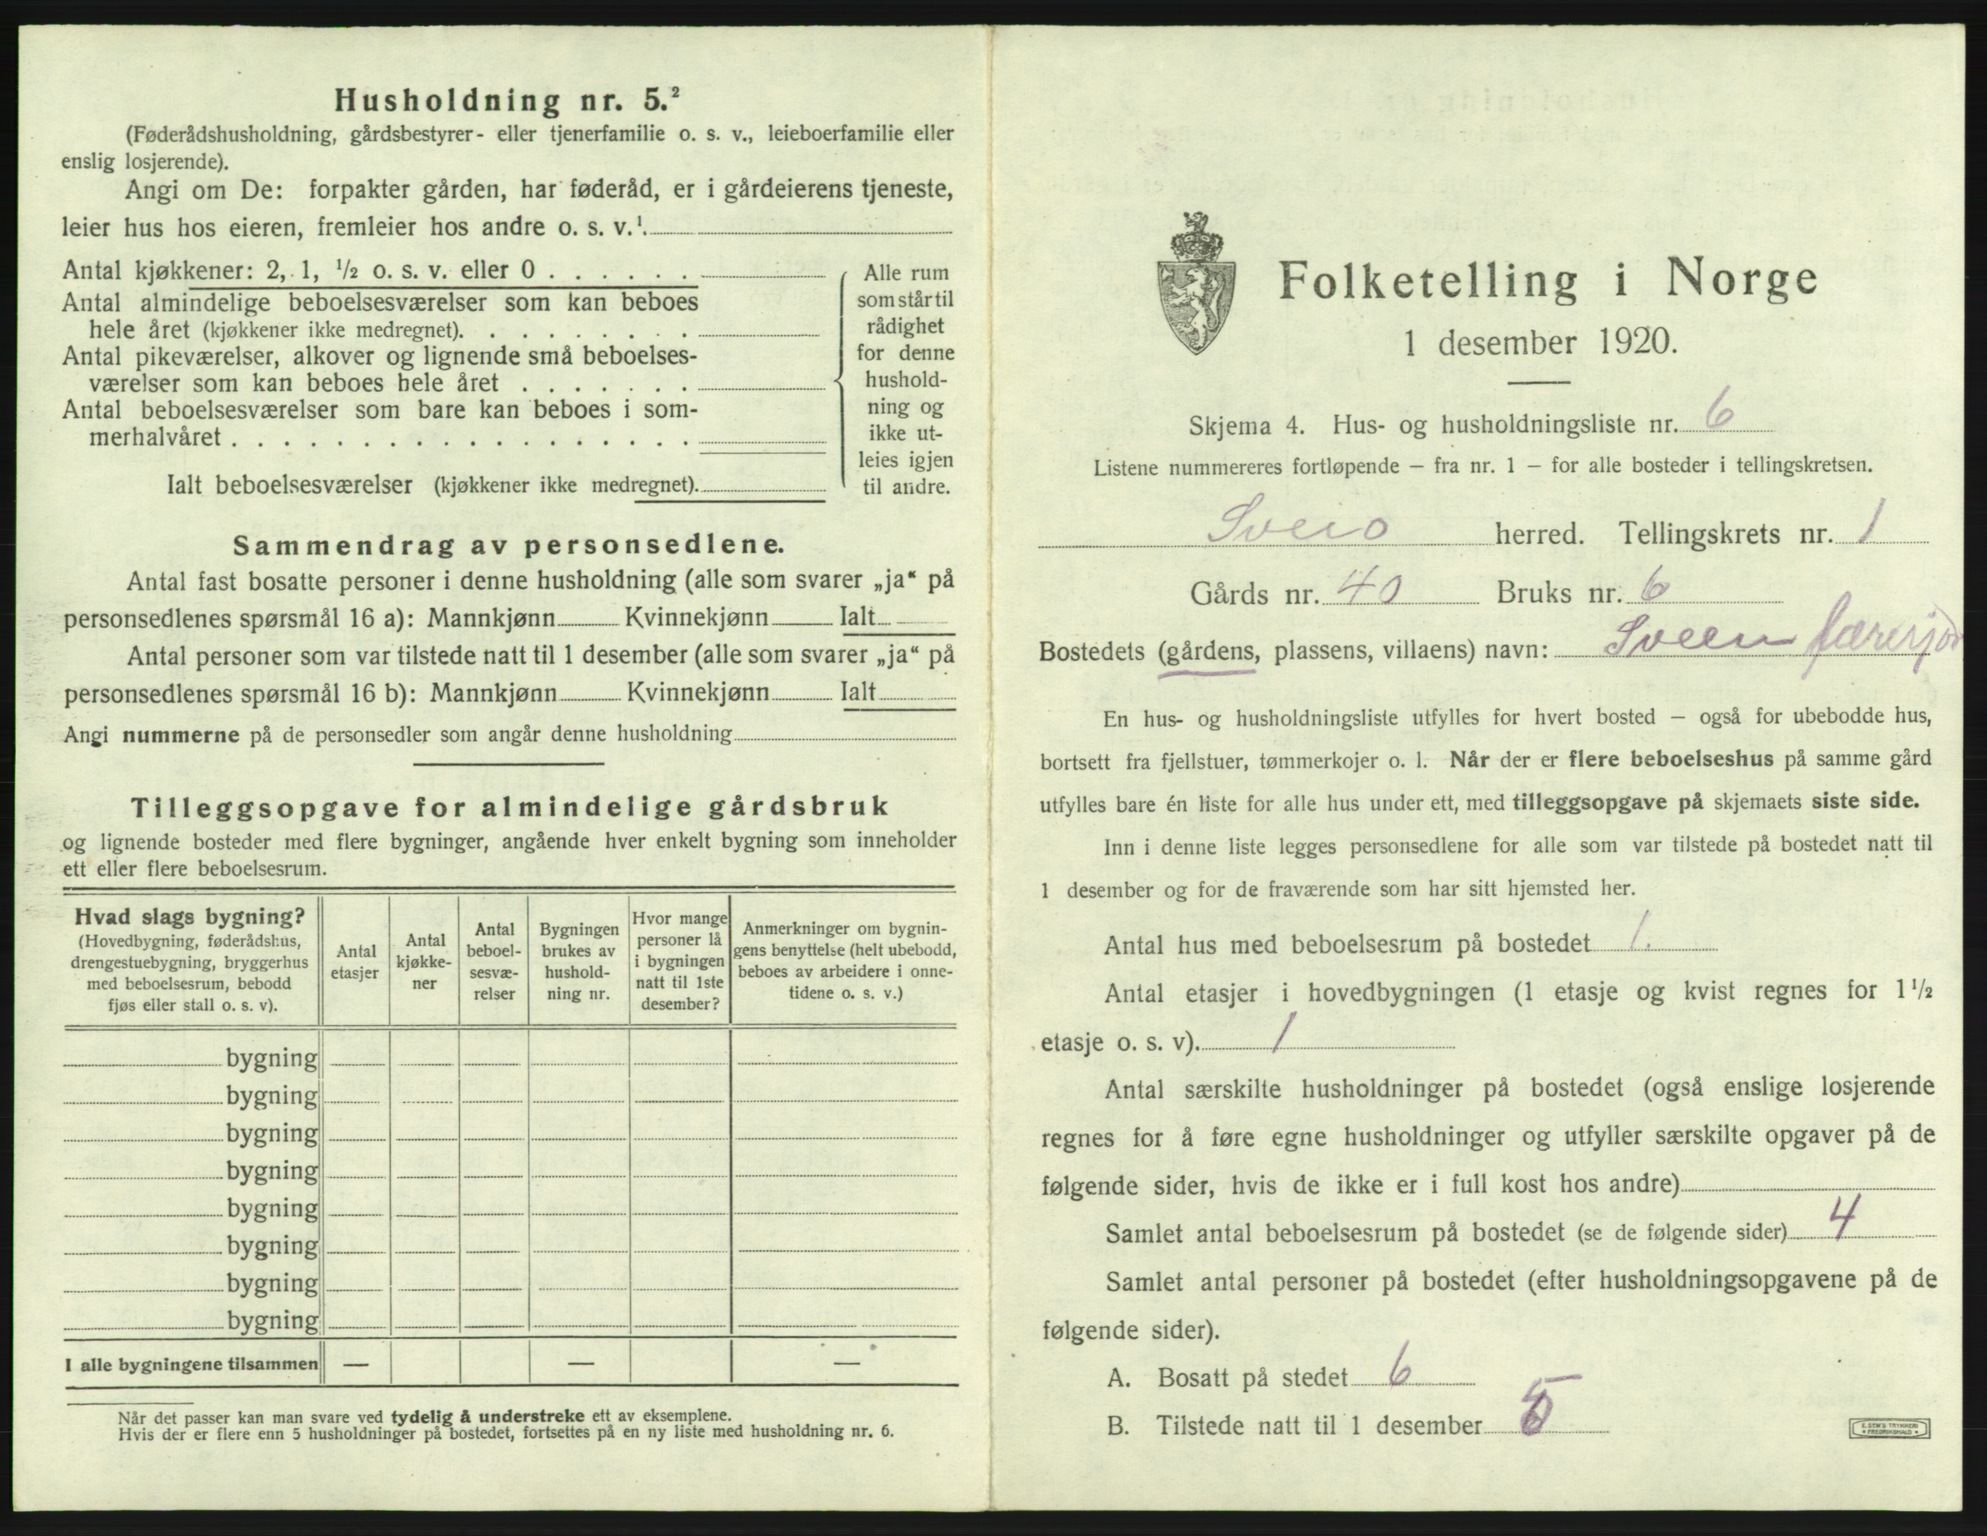 Husholdning nr. 5.²
(Føderådshusholdning, gårdsbestyrer- eller tjenerfamilie o. s. v., leieboerfamilie eller
enslig losjerende).
Angi om De: forpakter gården, har føderåd, er i gårdeierens tjeneste,
leier hus hos eieren, fremleier hos andre o. s. v.¹.
Antal kjøkkener: 2, 1, ½ o. s. v. eller 0 . . . . . .
Antal almindelige beboelsesværelser som kan beboes
hele året (kjøkkener ikke medregnet). . . . . . . .
Antal pikeværelser, alkover og lignende små beboelses-
værelser som kan beboes hele året . . . . . . .
Antal beboelsesværelser som bare kan beboes i som-
merhalvåret . . . . . . . . . . . . . . . . . .
Ialt beboelsesværelser (kjøkkener ikke medregnet).
Alle rum
som står til
rådighet
for denne
hushold-
ning og
ikke ut-
leies igjen
til andre.
Sammendrag av personsedlene.
Antal fast bosatte personer i denne husholdning (alle som svarer „ja“ på
personsedlenes spørsmål 16 a): Mannkjønn Kvinnekjønn Ialt
Antal personer som var tilstede natt til 1 desember (alle som svarer „ja“ på
personsedlenes spørsmål 16 b): Mannkjønn Kvinnekjønn Ialt
Angi nummerne på de personsedler som angår denne husholdning
Tilleggsopgave for almindelige gårdsbruk
og lignende bosteder med flere bygninger, angående hver enkelt bygning som inneholder
ett eller flere beboelsesrum.
Hvad slags bygning?
(Hovedbygning, føderådshus,
drengestuebygning, bryggerhus
med beboelsesrum, bebodd
fjøs eller stall o. s. v).
Antal
etasjer
Antal
kjøkke-
ner
Antal
beboel-
sesvæ-
relser
Bygningen
brukes av
hushold-
ning nr.
Hvor mange
personer lå
i bygningen
natt til 1ste
desember?
Anmerkninger om bygnin-
gens benyttelse (helt ubebodd,
beboes av arbeidere i onne-
tidene o. s. v.)
bygning
bygning
bygning
bygning
bygning
bygning
bygning
bygning
I alle bygningene tilsammen — — —
Når det passer kan man svare ved tydelig å understreke ett av eksemplene.
Hvis der er flere enn 5 husholdninger på bostedet, fortsettes på en ny liste med husholdning nr. 6.
Folketelling i Norge
1 desember 1920.
Skjema 4. Hus- og husholdningsliste nr. 6
Listene nummereres fortløpende – fra nr. 1 – for alle bosteder i tellingskretsen.
Sveio herred. Tellingskrets nr. 1
Gårds nr. 40 Bruks nr. 6
Bostedets (gårdens, plassens, villaens) navn: Sveen
En hus- og husholdningsliste utfylles for hvert bosted – også for ubebodde hus,
bortsett fra fjellstuer, tømmerkojer o. l. Når der er flere beboelseshus på samme gård
utfylles bare én liste for alle hus under ett, med tilleggsopgave på skjemaets siste side.
Inn i denne liste legges personsedlene for alle som var tilstede på bostedet natt til
1 desember og for de fraværende som har sitt hjemsted her.
Antal hus med beboelsesrum på bostedet 1.
Antal etasjer i hovedbygningen (1 etasje og kvist regnes for 1½
etasje o. s. v). 1
Antal særskilte husholdninger på bostedet (også enslige losjerende
regnes for å føre egne husholdninger og utfyller særskilte opgaver på de
følgende sider, hvis de ikke er i full kost hos andre)
Samlet antal beboelsesrum på bostedet (se de følgende sider) 4
Samlet antal personer på bostedet (efter husholdningsopgavene på de
følgende sider).
A. Bosatt på stedet 6
B. Tilstede natt til 1 desember 5
E. SEM'S TRYKKERI
FREDRIKSHALD